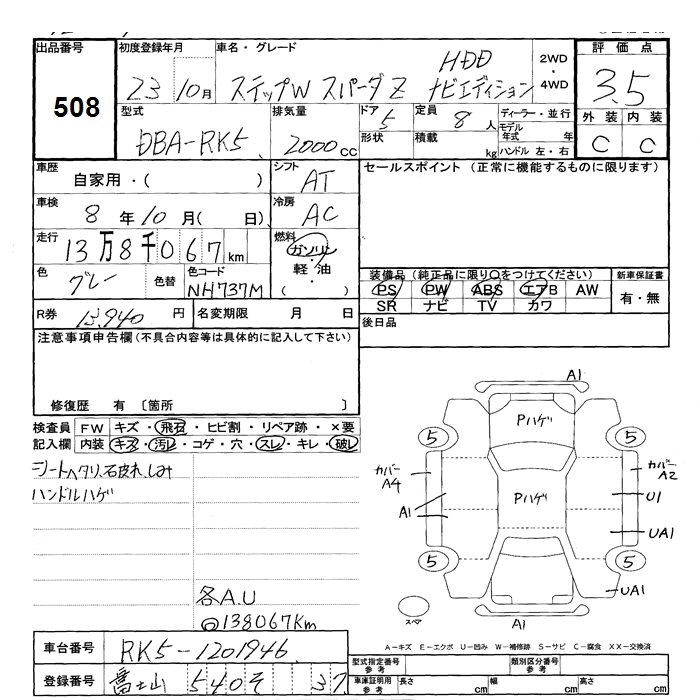 出品番号 初度登録年月 車名・グレード 評価点
508
23 10月 ステップW スパーダZ HDD ナビエディション 2WD・4WD 3.5
型式 排気量 ドア 5 定員 8人 ディーラー・並行 外装 内装
DBA-RK5 2000cc 形状 積載 kg モデル年式 年 ハンドル 左・右 C C
車歴 シフト セールスポイント (正常に機能するものに限ります)
自家用・( ) AT
車検 冷房
8年10月( 日) AC
走行 燃料
13万8千067km ガソリン・軽油
色 グレー 色替 色コード NH737M ( )
装備品 (純正品に限り○をつけてください) 新車保証書
PS PW ABS エアB AW 有・無
SR ナビ TV カワ
R券 13,940円 名変期限 月 日 後日品
注意事項申告欄(不具合内容等は具体的に記入して下さい)
修復歴 有 〔箇所 〕
検査員 FW キズ・飛石・ヒビ割・リペア跡・×要
記入欄 内装 キズ・汚レ・コゲ・穴・スレ・キレ・破レ
シートヘタリ、石皮れ、しみ
ハンドルハゲ
各A.U
@138067Km
A1
Pハゲ
5 5
カバー A4 カバー A2
Pハゲ
U1
A1
UA1
5 5
UA1
スペア
A1
A-キズ E-エクボ U-凹み W-補修跡 S-サビ C-腐食 XX-交換済
車台番号 RK5-1201946
型式指定番号 参考 類別区分番号 参考
登録番号 富士山 540 そ 37
車庫証明用 参考 長さ cm 幅 cm 高さ cm